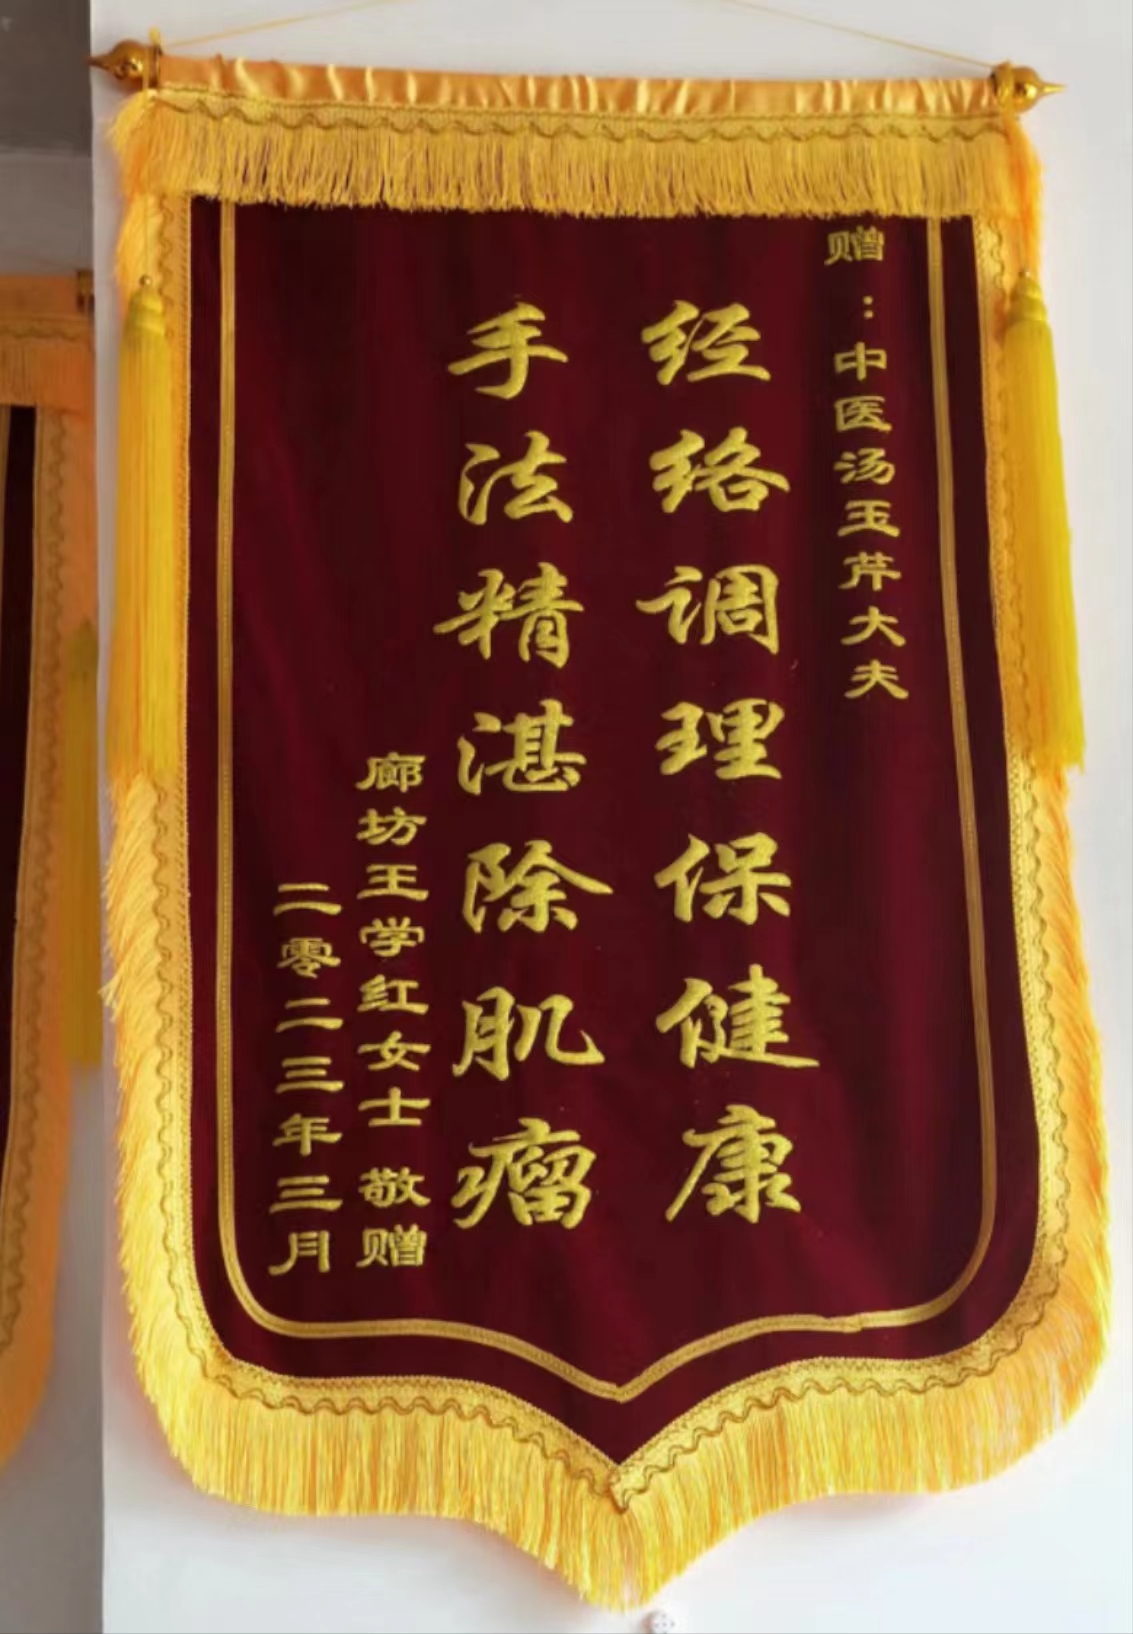 赠：中医汤玉芹大夫
经络调理保健康
手法精湛除肌瘤
廊坊王学红女士 敬赠
二零二三年三月